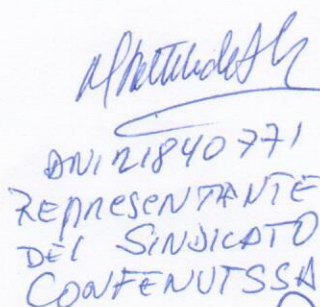 DNI 21840771
REPRESENTANTE
DEL SINDICATO
CONFENUTSSA